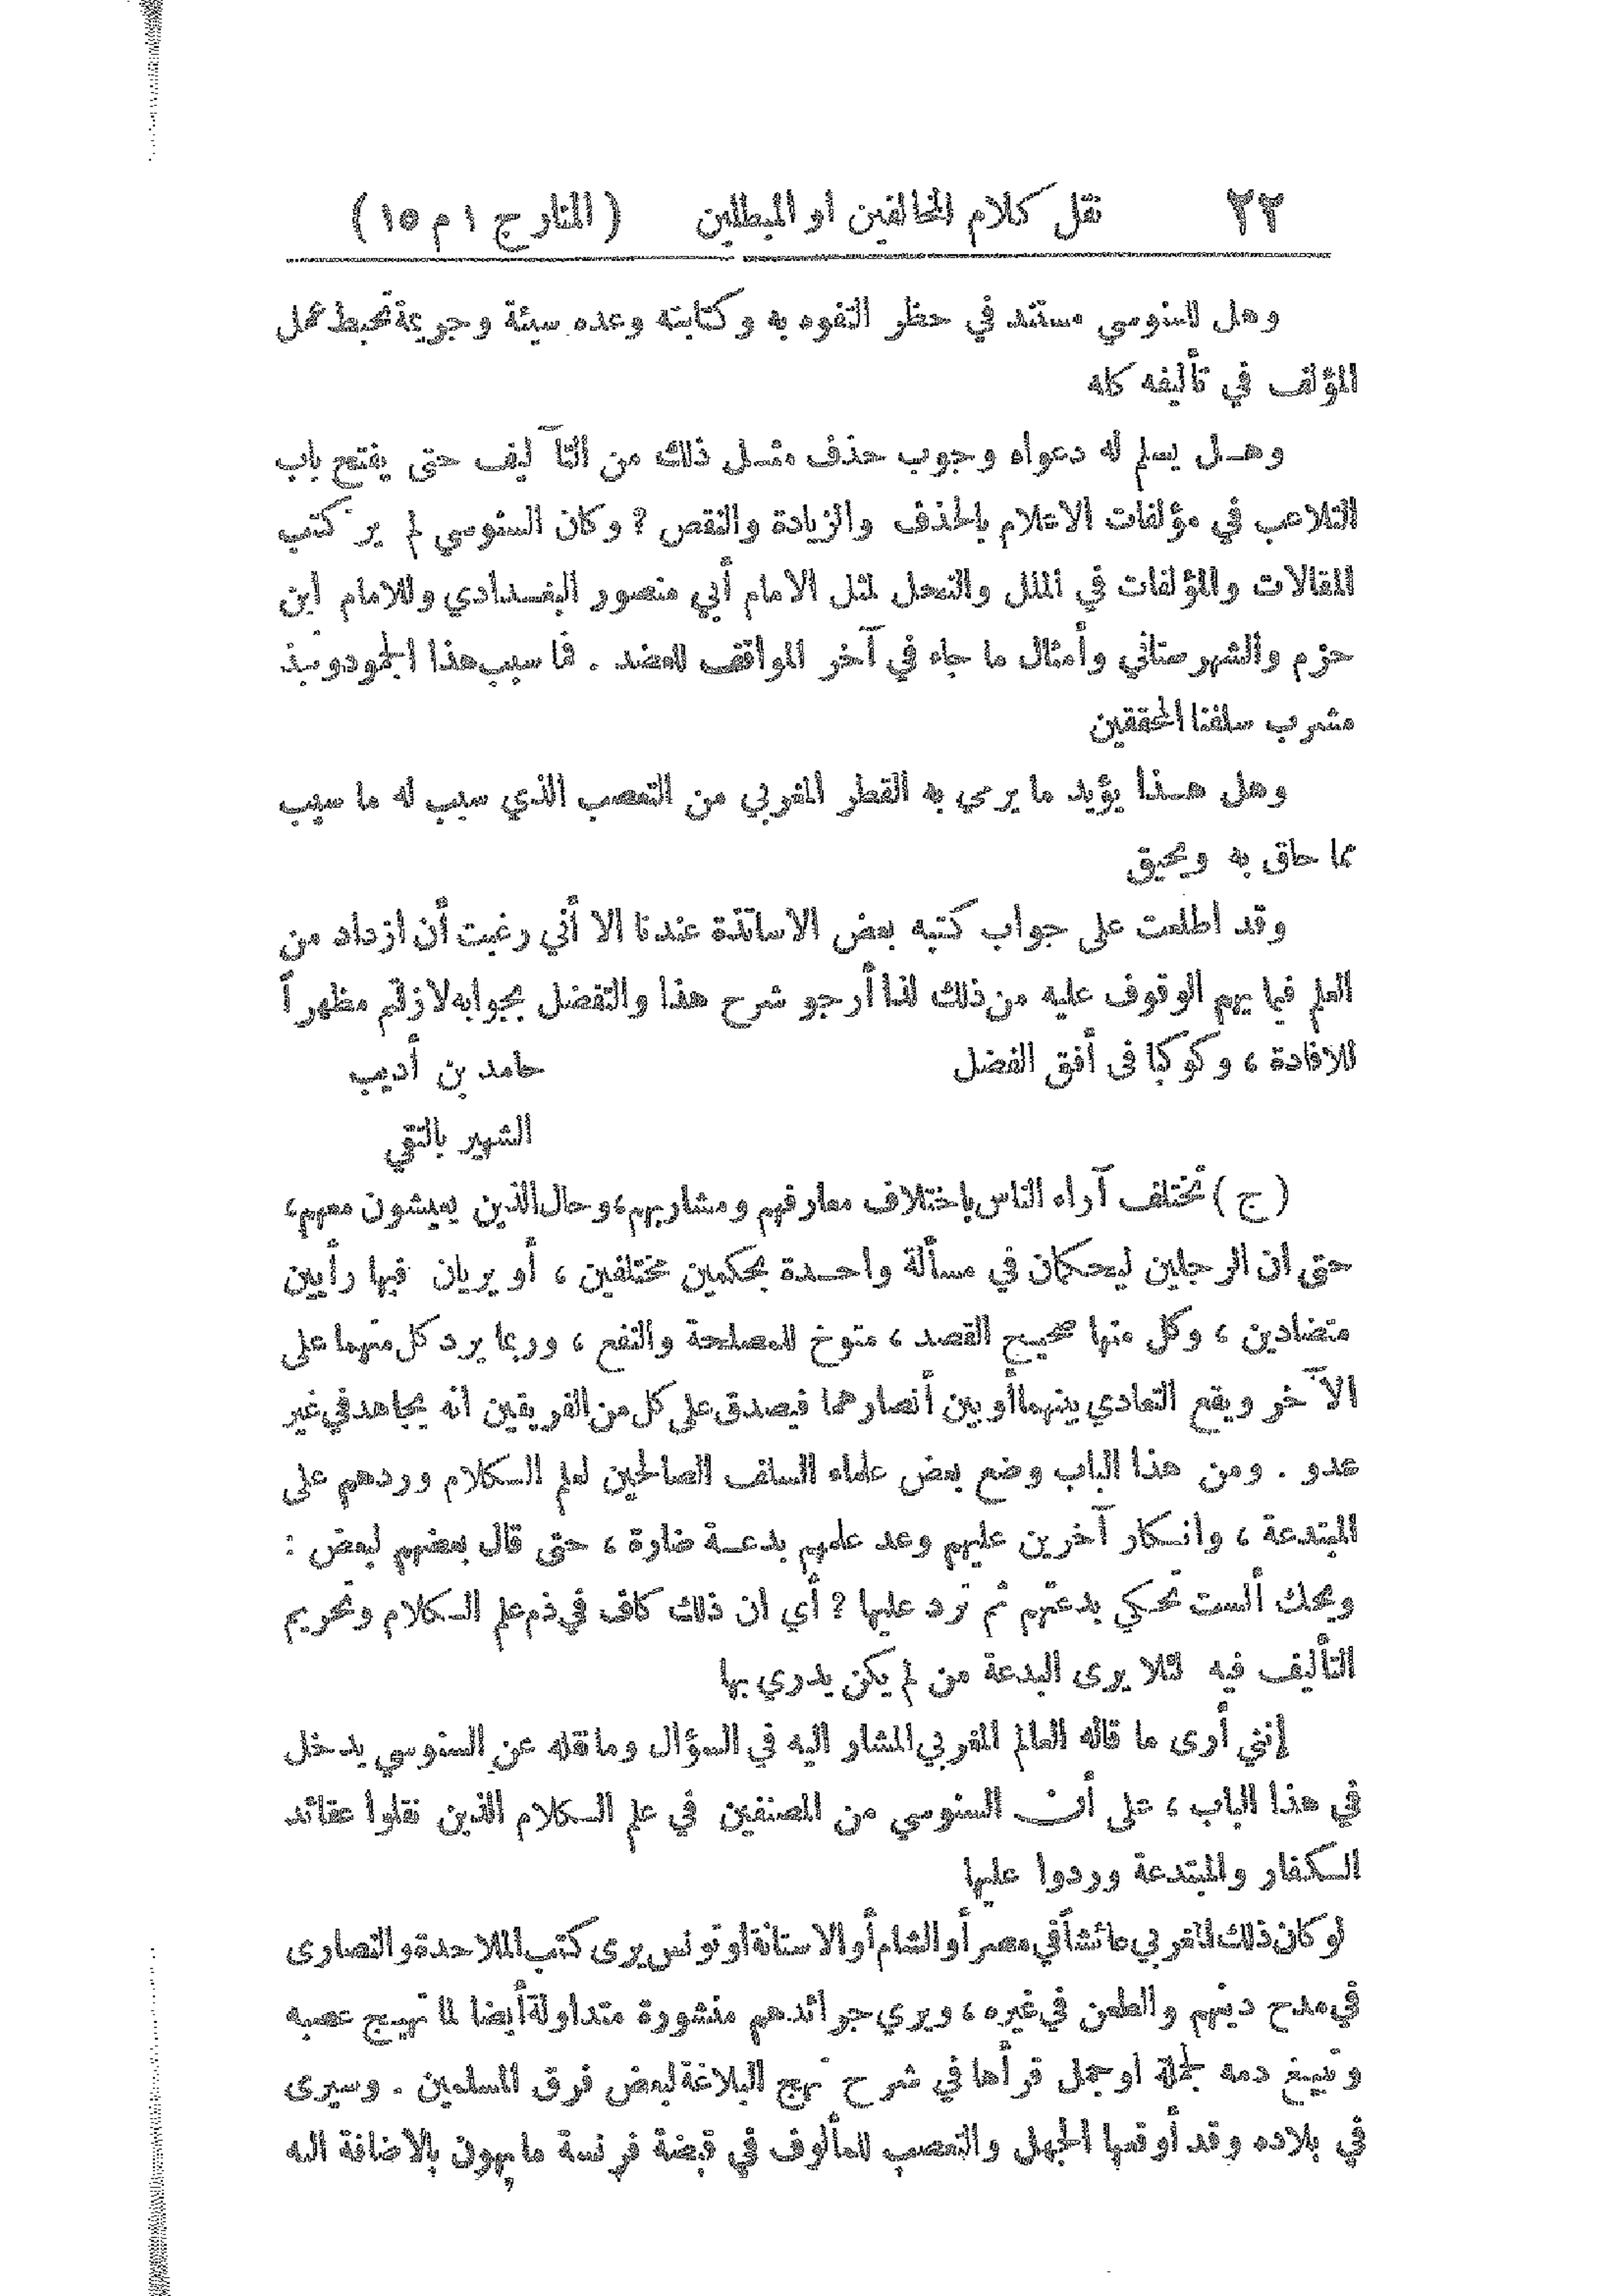 ٢٢ نقل كلام المخالفين او المبطلين ( المنار ج ١ م ١٥ )
وهل للسنوسي مستند في حظر التفوه به وكتابته وعده سيئة وجريمة تحبط عمل
المؤلف في تأليفه كله
وهـل يسلم له دعواه وجوب حذف مثـل ذلك من التآليف حتى يفتح باب
التلاعب في مؤلفات الاعلام بالحذف والزيادة والنقص ؟ وكان السنوسي لم ير كتب
المقالات والمؤلفات في الملل والنحل لمثل الامام أبي منصور البغـدادي وللامام ابن
حزم والشهرستاني وأمثال ما جاء في آخر المواقف للعضد . فما سبب هذا الجمود ونبذ
مشرب سلفنا المحققين
وهل هـذا يؤيد ما يرمى به القطر المغربي من التعصب الذي سبب له ما سبب
مما حاق به ويحيق
وقد اطلعت على جواب كتبه بعض الاساتذة عندنا الا أني رغبت أن ازداد من
العلم فيما يهم الوقوف عليه من ذلك لذا أرجو شرح هذا والتفضل بجوابه لازلتم مظهراً
للافادة ، وكوكبا فى أفق الفضل حامد بن أديب
الشهير بالتقي
( ج ) تختلف آراء الناس باختلاف معارفهم ومشاربهم، وحال الذين يعيشون معهم،
حتى ان الرجلين ليحكمان في مسألة واحـدة بحكمين مختلفين ، أو يريان فيها رأيين
متضادين ، وكل منهما صحيح القصد ، متوخ للمصلحة والنفع ، وربما يرد كل منهما على
الآخر ويقع التعادي بينهما أو بين أنصارهما فيصدق على كل من الفريقين انه يجاهد في غير
عدو . ومن هذا الباب وضع بعض علماء السلف الصالحين لعلم الـكلام وردهم على
المبتدعة ، وانـكار آخرين عليهم وعد علمهم بدعـة ضارة ، حتى قال بعضهم لبعض :
ويحك ألست تحكي بدعتهم ثم ترد عليها ؟ أي ان ذلك كاف في ذم علم الـكلام وتحريم
التأليف فيه لئلا يرى البدعة من لم يكن يدري بها
إنني أرى ما قاله العالم المغربي المشار اليه في السؤال وما نقله عن السنوسي يدخل
في هذا الباب ، على أن السنوسي من المصنفين في علم الـكلام الذين نقلوا عقائد
الـكفار والمبتدعة وردوا عليها
لو كان ذلك المغربي عائشاً في مصر أو الشام أو الاستانة او تونس يرى كتب الملاحدة والنصارى
في مدح دينهم والطعن في غيره ، ويرى جرائدهم منشورة متداولة أيضا لما تهيـج عصبه
وتبيـغ دمه لجملة او جمل قرأها في شرح نهج البلاغة لبعض فرق المسلمين . وسيرى
في بلاده وقد أوقعها الجهل والتعصب للمألوف في قبضة فرنسة ما يهون بالاضافة اليه